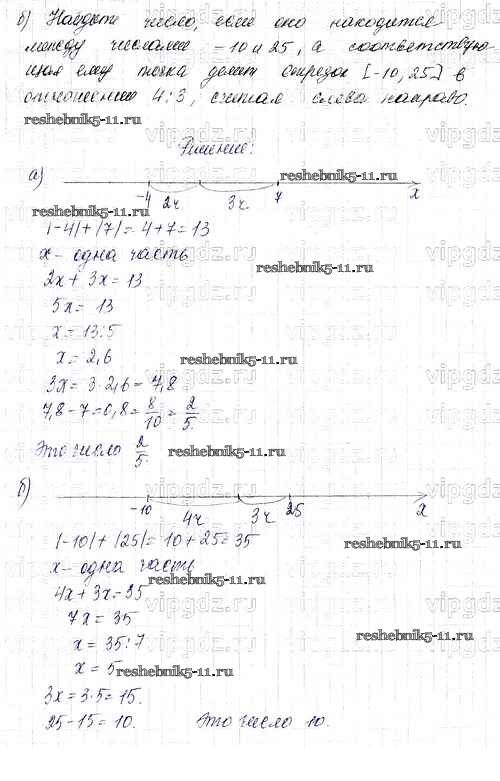 б) Найдите число, если оно находится
между числами -10 и 25, а соответствую-
щая ему точка делит отрезок [-10, 25] в
отношении 4:3, считая слева направо.
reshebnik5-11.ru
Решение:
а)
reshebnik5-11.ru
-4 2ч 3ч 7 x
reshebnik5-11.ru
|-4|+|7|=4+7=13
x - одна часть
reshebnik5-11.ru
2x+3x=13
5x=13
x=13:5
x=2,6
reshebnik5-11.ru
3x=3·2,6=7,8
7,8-7=0,8=8/10=2/5.
Это число 2/5.
reshebnik5-11.ru
б)
-10 4ч 3ч 25 x
|-10|+|25|=10+25=35
reshebnik5-11.ru
x - одна часть
reshebnik5-11.ru
4x+3x=35
7x=35
x=35:7
reshebnik5-11.ru
x=5
reshebnik5-11.ru
3x=3·5=15.
25-15=10. Это число 10.
vipgdz.ru